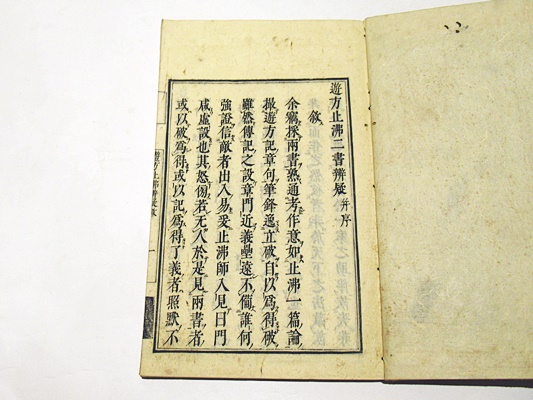 遊方止沸二書辨疑 并序
敘
余竊採兩書熟通考作意如止沸一篇論
撮遊方記章句筆鋒逸立破自以爲得破
雖然傳記之設章門近義壘遠不備誰何
強證信敵者出入易爰止沸師入見日門
咸虛設也其怒芻若無人於是見兩書者
或以破爲得或以記爲得了義者照默不
遊方止沸辨疑敘
一